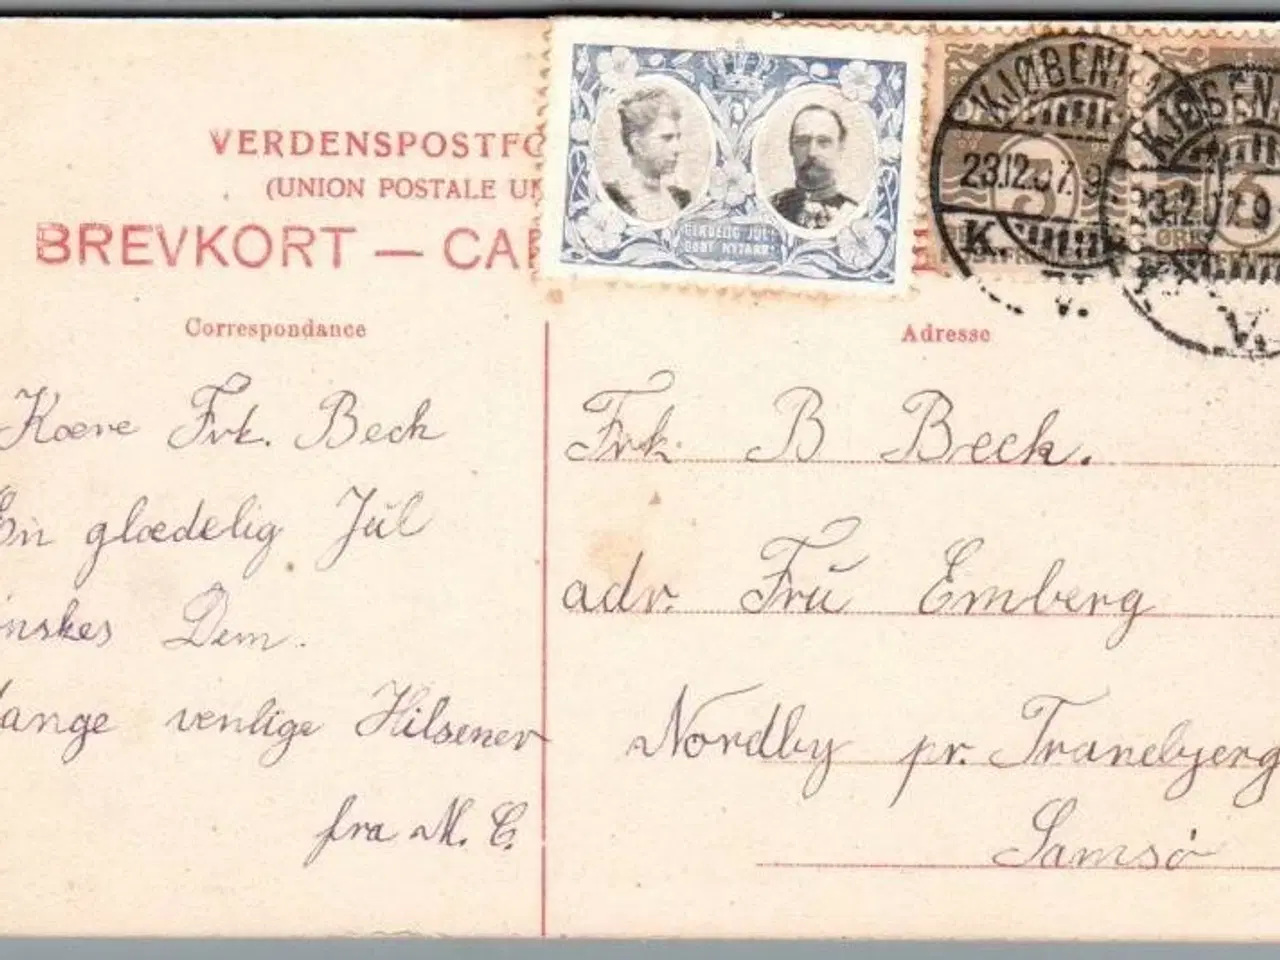 VERDENSPOSTFO
(UNION POSTALE UN
BREVKORT — CAR
GLÆDELIG JUL!
GODT NYTAAR!
KJØBENH
23.12.07. 9
K.
V.
KJØBENH
23.12.07. 9
V.
3
ØRE
Correspondance
Kære Frk. Beck
En glædelig Jul
ønskes Dem.
Mange venlige Hilsener
fra M. C.
Adresse
Frk. B Beck.
adr. Fru Emberg
Nordby pr. Tranebjerg
Samsø